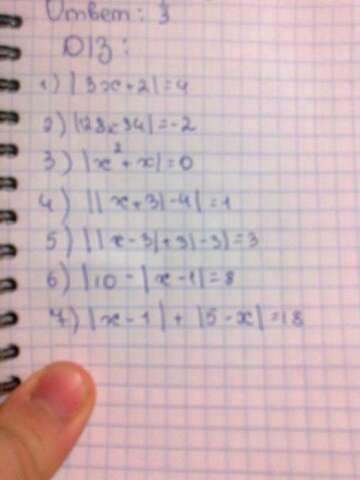 Ответ: 3
Д/З:
1) |3x+2|=4
2) |123x34|=-2
3) |x²+x|=0
4) ||x+3|-4|=1
5) ||x-3|+3|-3|=3
6) |10-|x-1|=8
7) |x-1|+|5-x|=18